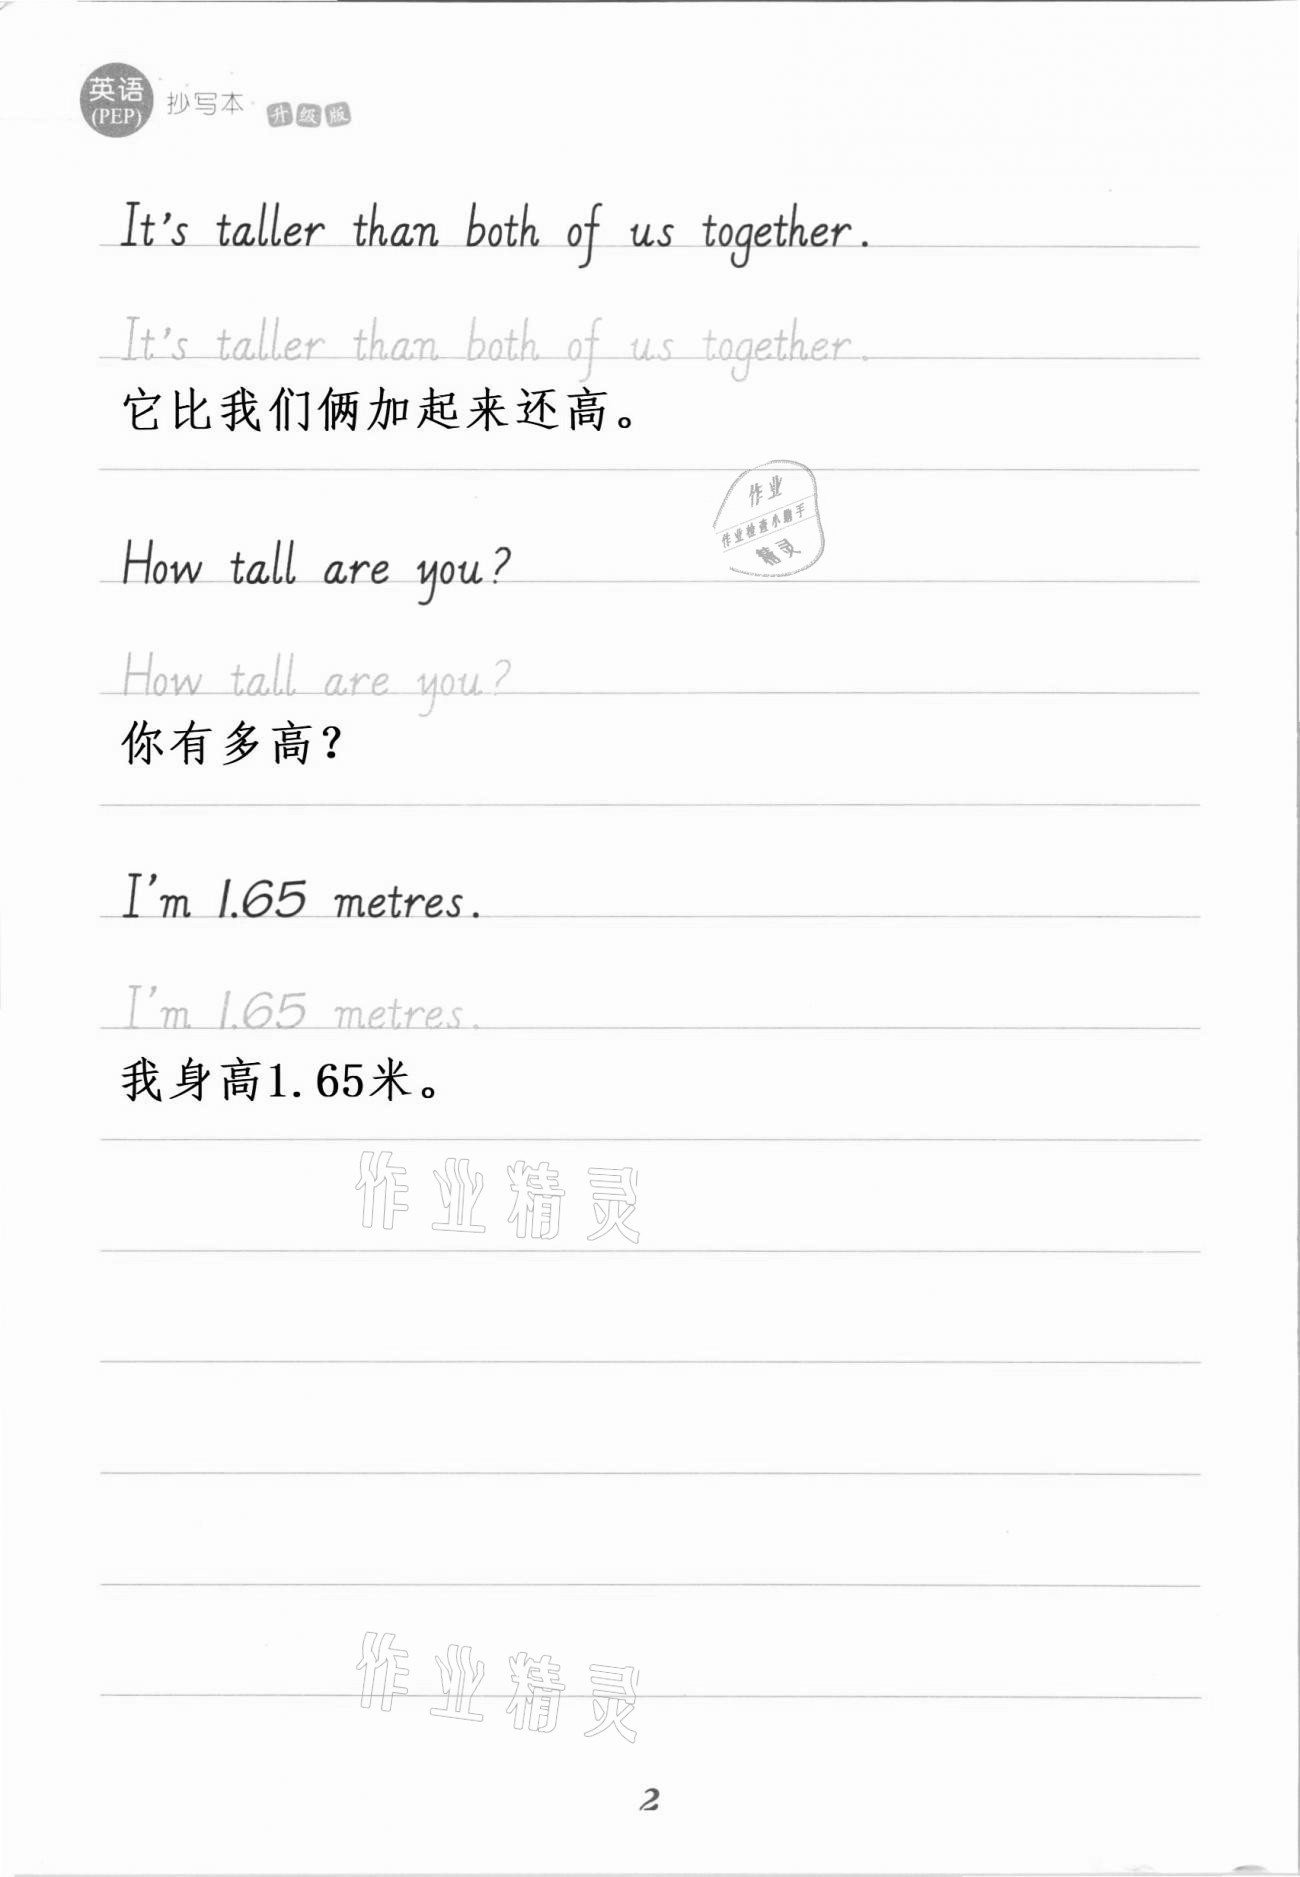 英语
(PEP)
抄写本 升级版
It's taller than both of us together.
It's taller than both of us together.
它比我们俩加起来还高。
作业
作业检查小助手
精灵
How tall are you?
How tall are you?
你有多高？
I'm 1.65 metres.
I'm 1.65 metres.
我身高1.65米。
作业精灵
作业精灵
2